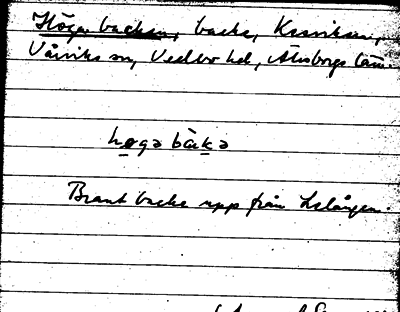 Höga backen, backe, Kasviken,
Vårviks sn, Vedbo hd, Älvsborgs län.
høgə bàkə
Brant backe upp från Lelången.